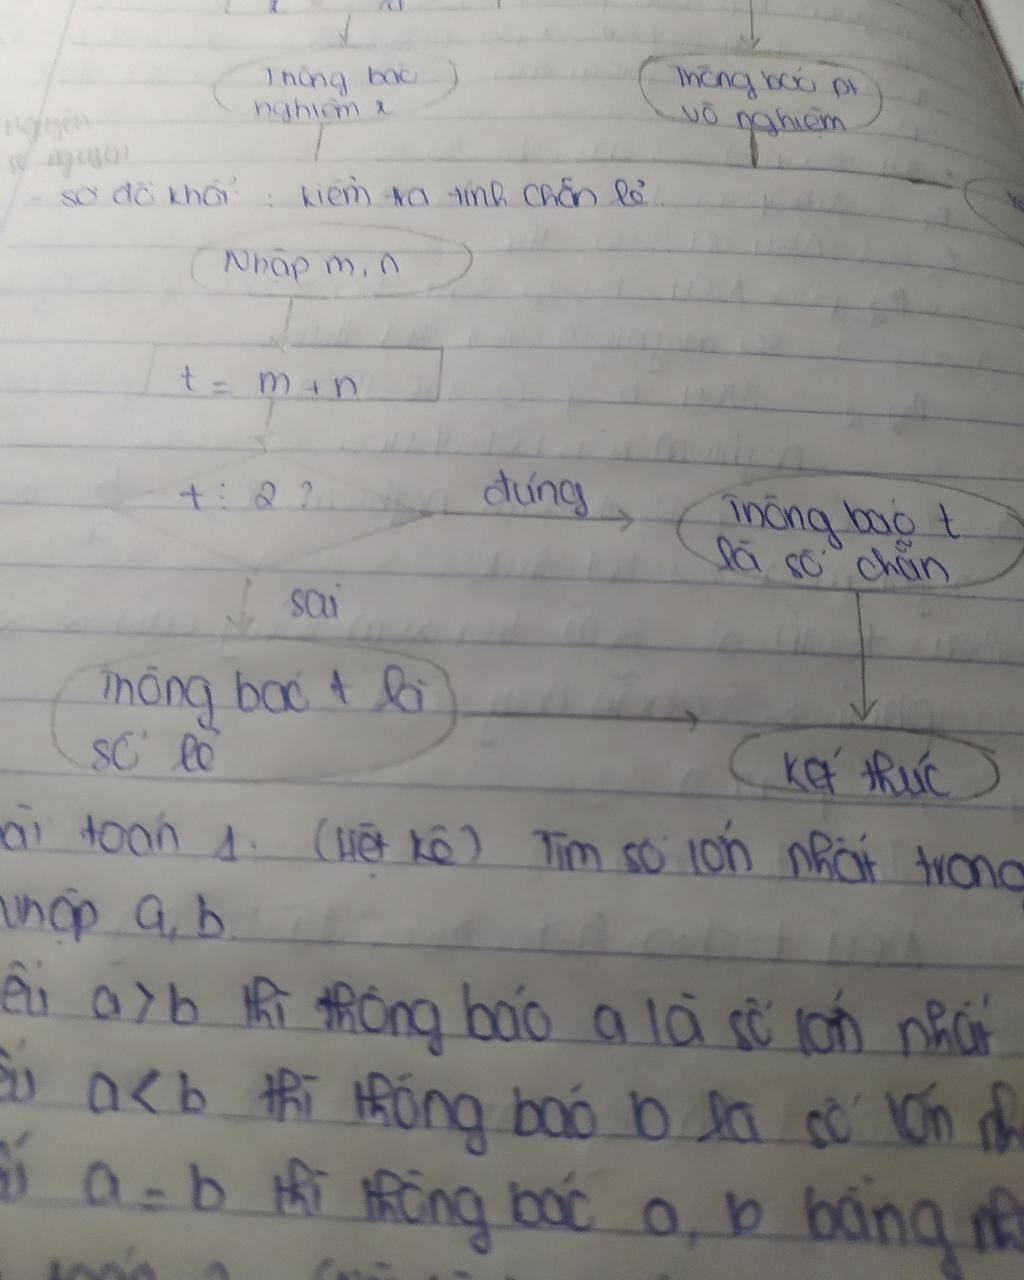 Thông báo
nghiệm x
Thông báo pt
vô nghiệm
nguyên
số nguyên
- sơ đồ khối : kiểm tra tính chẵn lẻ.
Nhập m, n
t = m + n
t ⋮ 2 ?
đúng
Thông báo t
là số chẵn
sai
Thông báo t là
số lẻ
Kết thúc
ài toán 1. (Liệt kê) Tìm số lớn nhất trong
nhập a, b
ếu a > b thì thông báo a là số lớn nhất
ếu a < b thì thông báo b là số lớn nh
ếu a = b thì thông báo a, b bằng nh